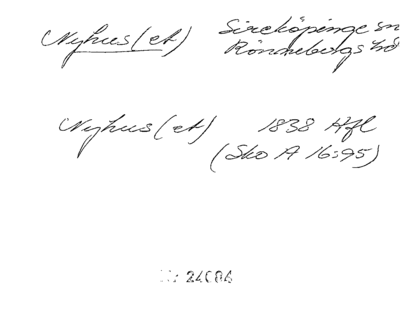 Nyhus (et) Sireköpinge sn
Rönnebergs hd
Nyhus (et) 1838 Hfl
(Sko A 16:95)
Nr 24084